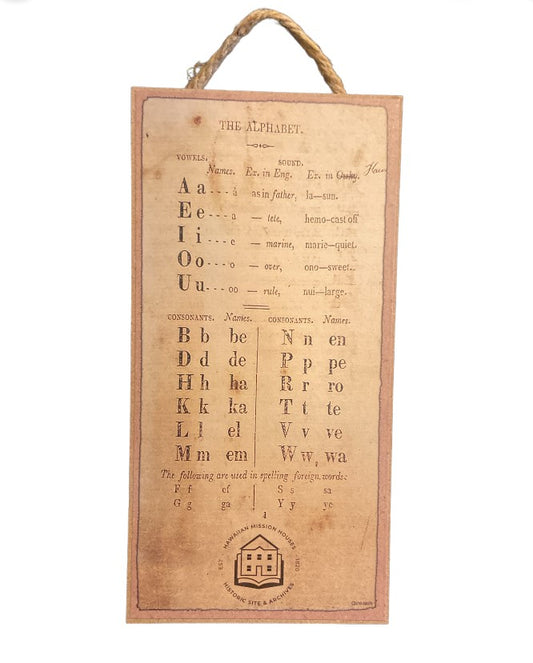 THE ALPHABET.
VOWELS. SOUND.
Names. Ex. in Eng. Ex. in
A a - - - - á as in father, la—sun.
E e - - - a — tete, hemo—cast off
I i - - - e — marine, marie—quiet.
O o - - - o — over, ono—sweet.
U u - - - oo — rule, nui—large.
CONSONANTS. Names. CONSONANTS. Names.
B b be N n en
D d de P p pe
H h ha R r ro
K k ka T t te
L l el V v ve
M m em W w, wa
The following are used in spelling foreign words:
F f ef S s sa
G g ga Y y ye
HAWAIIAN MISSION HOUSES
EST 1820
HISTORIC SITE & ARCHIVES